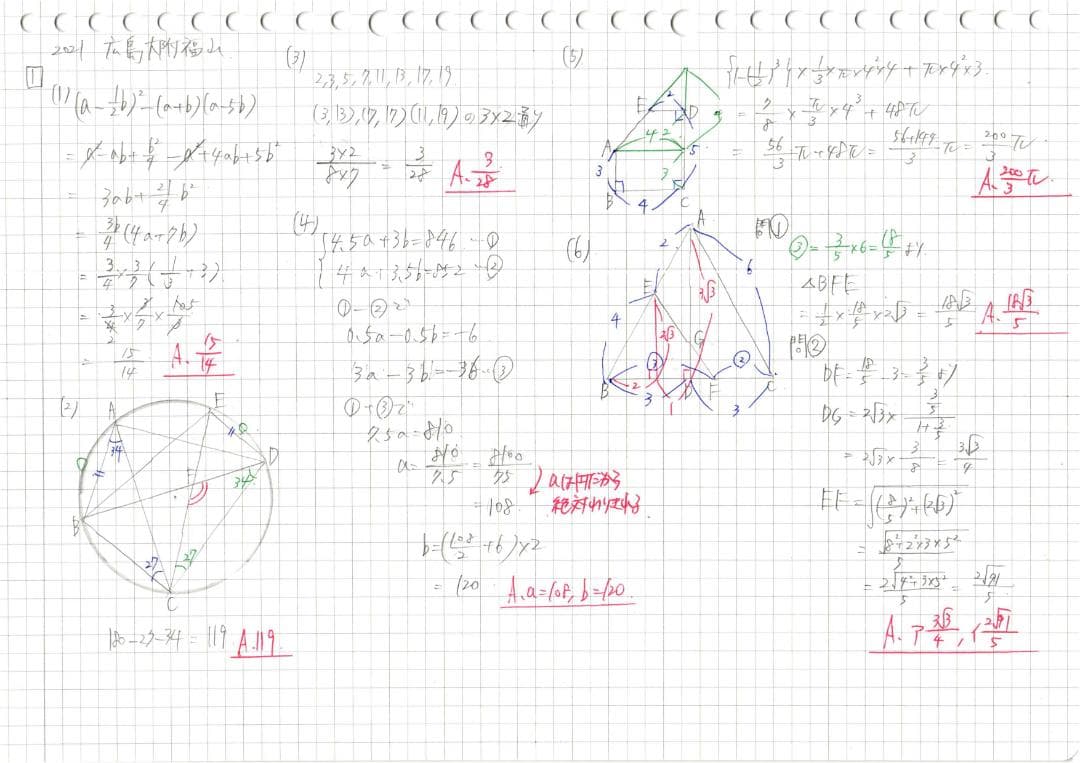 2021 広島大附福山
1
(1) (a-1/2b)²-(a+b)(a-5b)
=a²-ab+b²/4-a²+4ab+5b²
=3ab+21/4b²
=3b/4(4a+7b)
=3/4×3/7(1/3+3)
=15/14
A. 15/14
(2)
A
E
D
B
C
F
34
34
27
27
180-27-34=119
A. 119
(3)
2,3,5,7,11,13,17,19
3×2/8×7 = 3/28
A. 3/28
(4)
4.5a+3b=846 …①
4a+3.5b=852 …②
①-②で
0.5a-0.5b=-6
3a-3b=-36…③
①+③で
7.5a=810
a=810/7.5=8100/75
=108
b=(108/2+6)×2
=120
A. a=108, b=120
(5)
E
2
D
A
4
2
5
3
3
B
4
C
{1-(1/2)³}×1/3×π×4²×4+π×4²×3
=7/8×π/3×4³+48π
=56/3π+48π=56+144/3π=200/3π
A. 200/3π
(6)
A
2
6
E
3√3
4
2√3
G
③
②
B
2
D
F
C
3
1
3
問①
③=3/5×6=18/5より
△BFE
=1/2×18/5×2√3=18√3/5
A. 18√3/5
問②
DF=18/5-3=3/5より
DG=2√3×3/5/1+3/5
=2√3×3/8=3√3/4
EF=√(8/5)²+(2√3)²
=√8²+2²×3×5²/5
=2√4²+3×5²/5=2√91/5
A. ア3√3/4, イ2√91/5